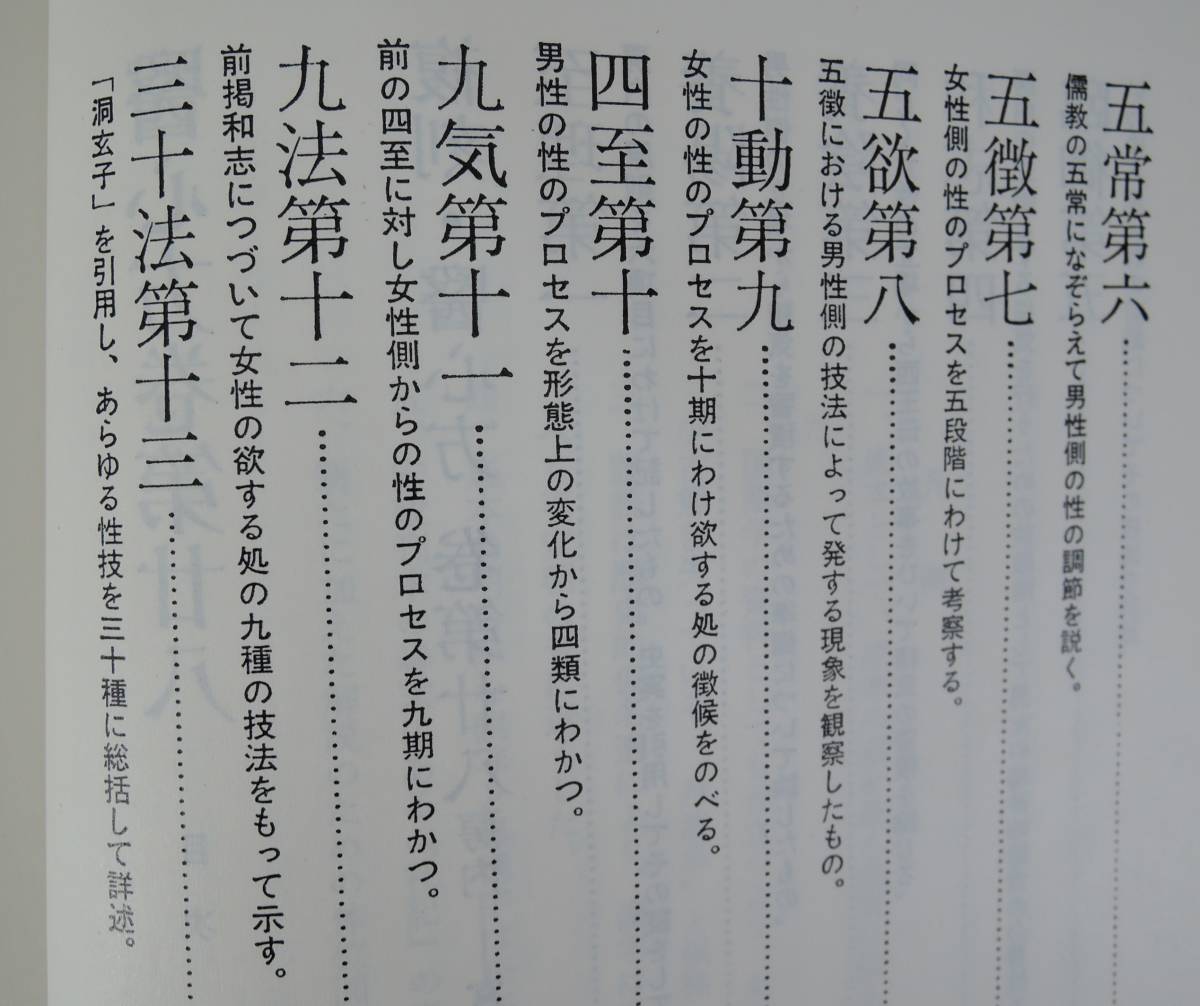 五常第六
儒教の五常になぞらえて男性側の性の調節を説く。
五徴第七
女性側の性のプロセスを五段階にわけて考察する。
五欲第八
五徴における男性側の技法によって発する現象を観察したもの。
十動第九
女性の性のプロセスを十期にわけ欲する処の徴候をのべる。
四至第十
男性の性のプロセスを形態上の変化から四類にわかつ。
九気第十一
前の四至に対し女性側からの性のプロセスを九期にわかつ。
九法第十二
前掲和志につづいて女性の欲する処の九種の技法をもって示す。
三十法第十三
「洞玄子」を引用し、あらゆる性技を三十種に総括して詳述。